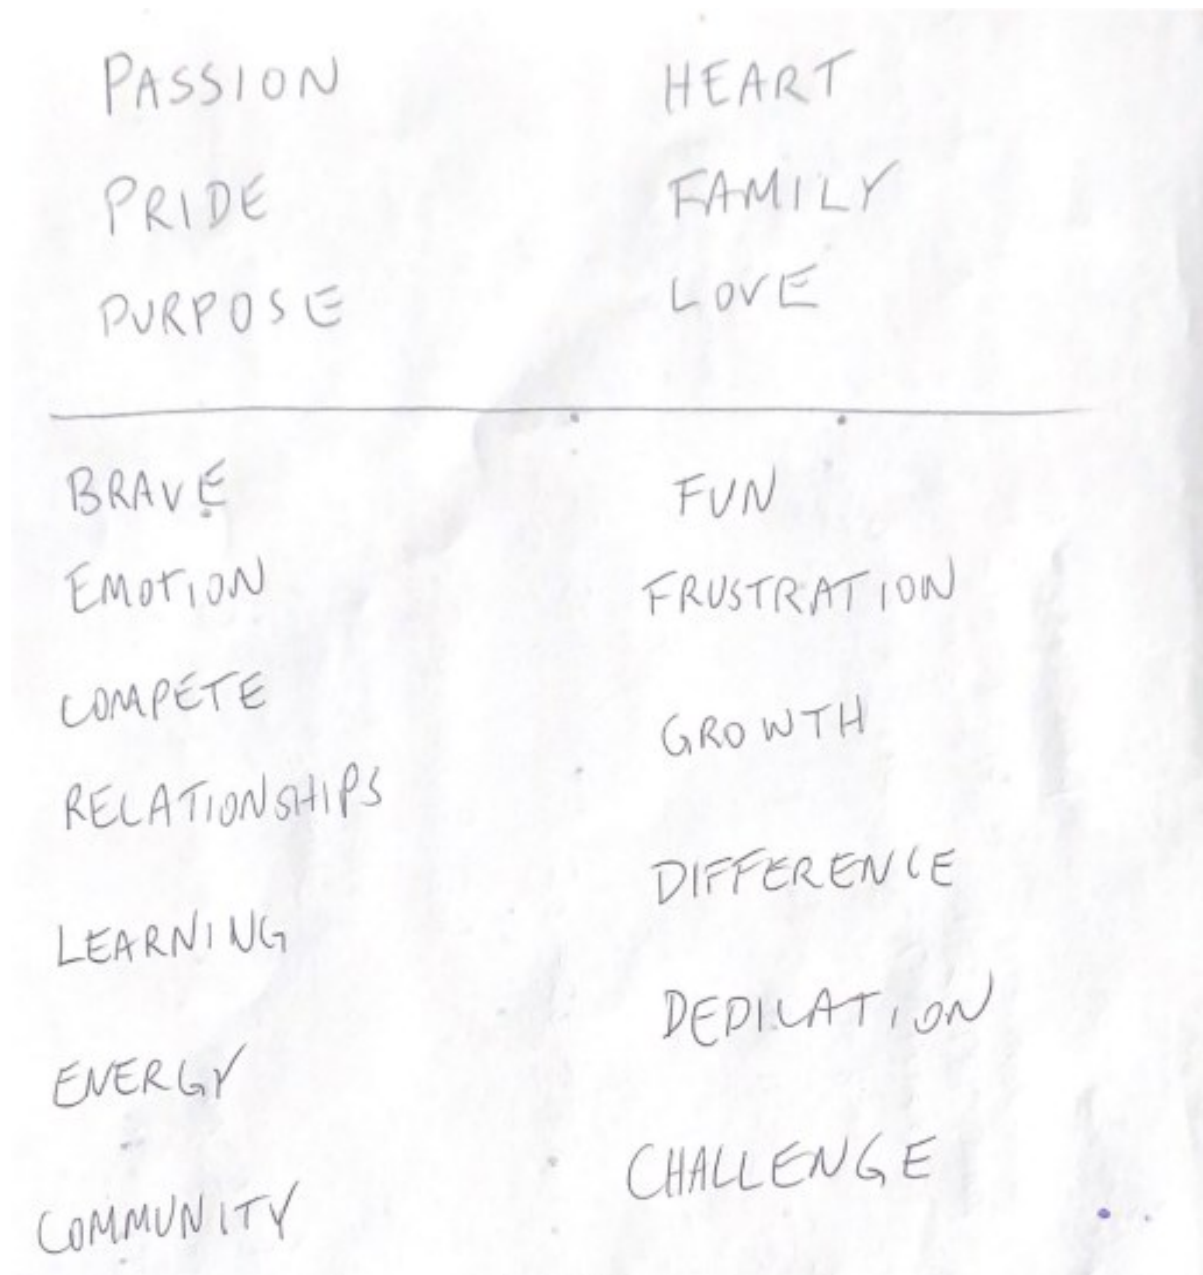 PASSION
PRIDE
PURPOSE
HEART
FAMILY
LOVE
BRAVE
EMOTION
COMPETE
RELATIONSHIPS
LEARNING
ENERGY
COMMUNITY
FUN
FRUSTRATION
GROWTH
DIFFERENCE
DEDICATION
CHALLENGE